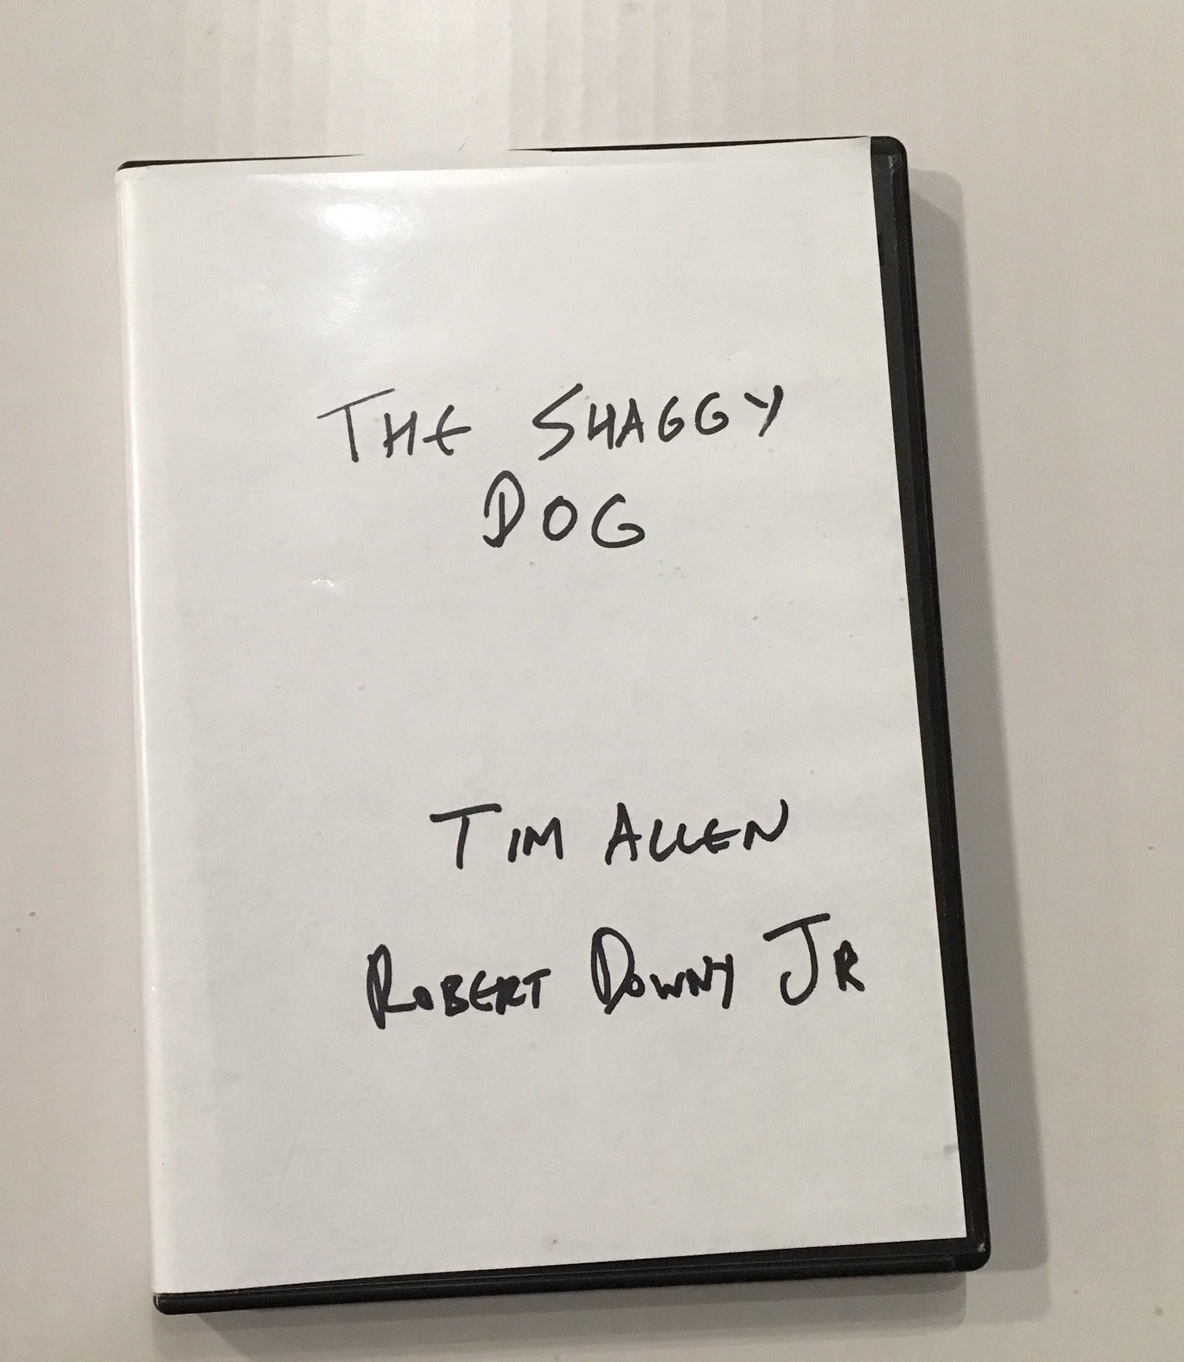 THE SHAGGY
DOG
TIM ALLEN
ROBERT DOWNY JR